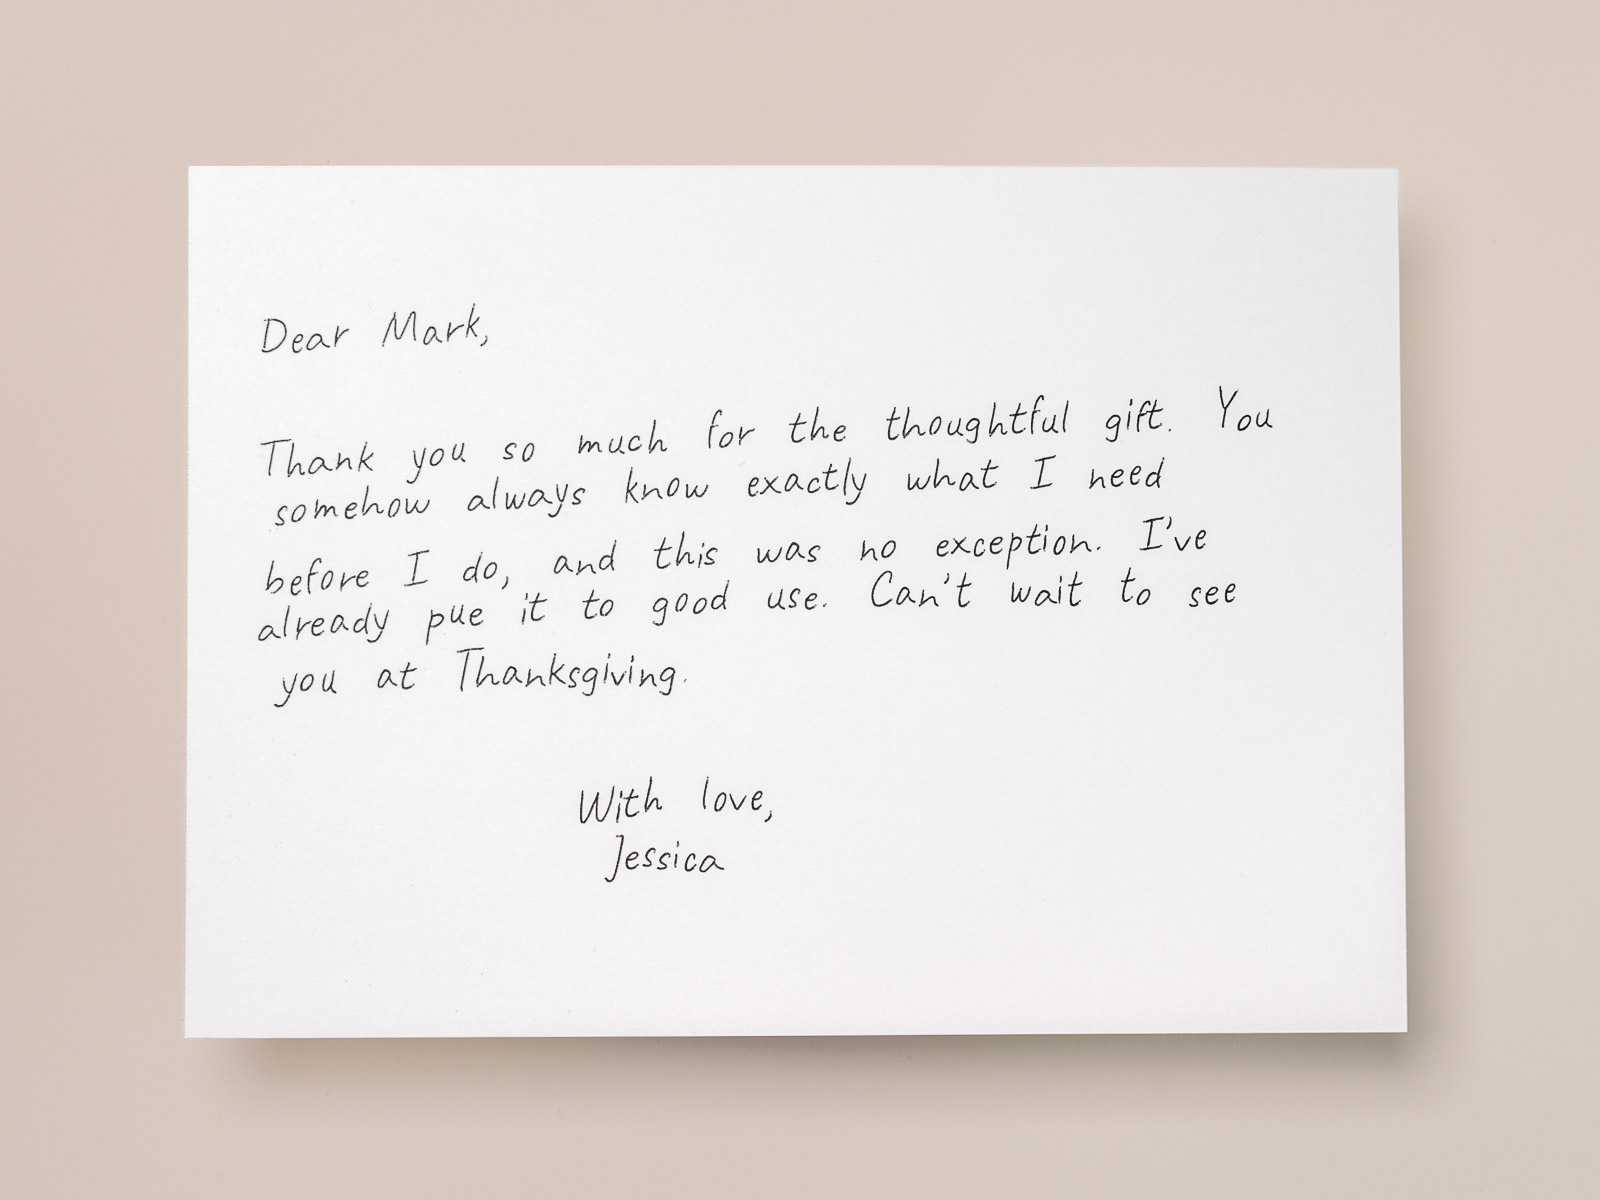 Dear Mark,
Thank you so much for the thoughtful gift. You
somehow always know exactly what I need
before I do, and this was no exception. I've
already pue it to good use. Can't wait to see
you at Thanksgiving.
With love,
Jessica